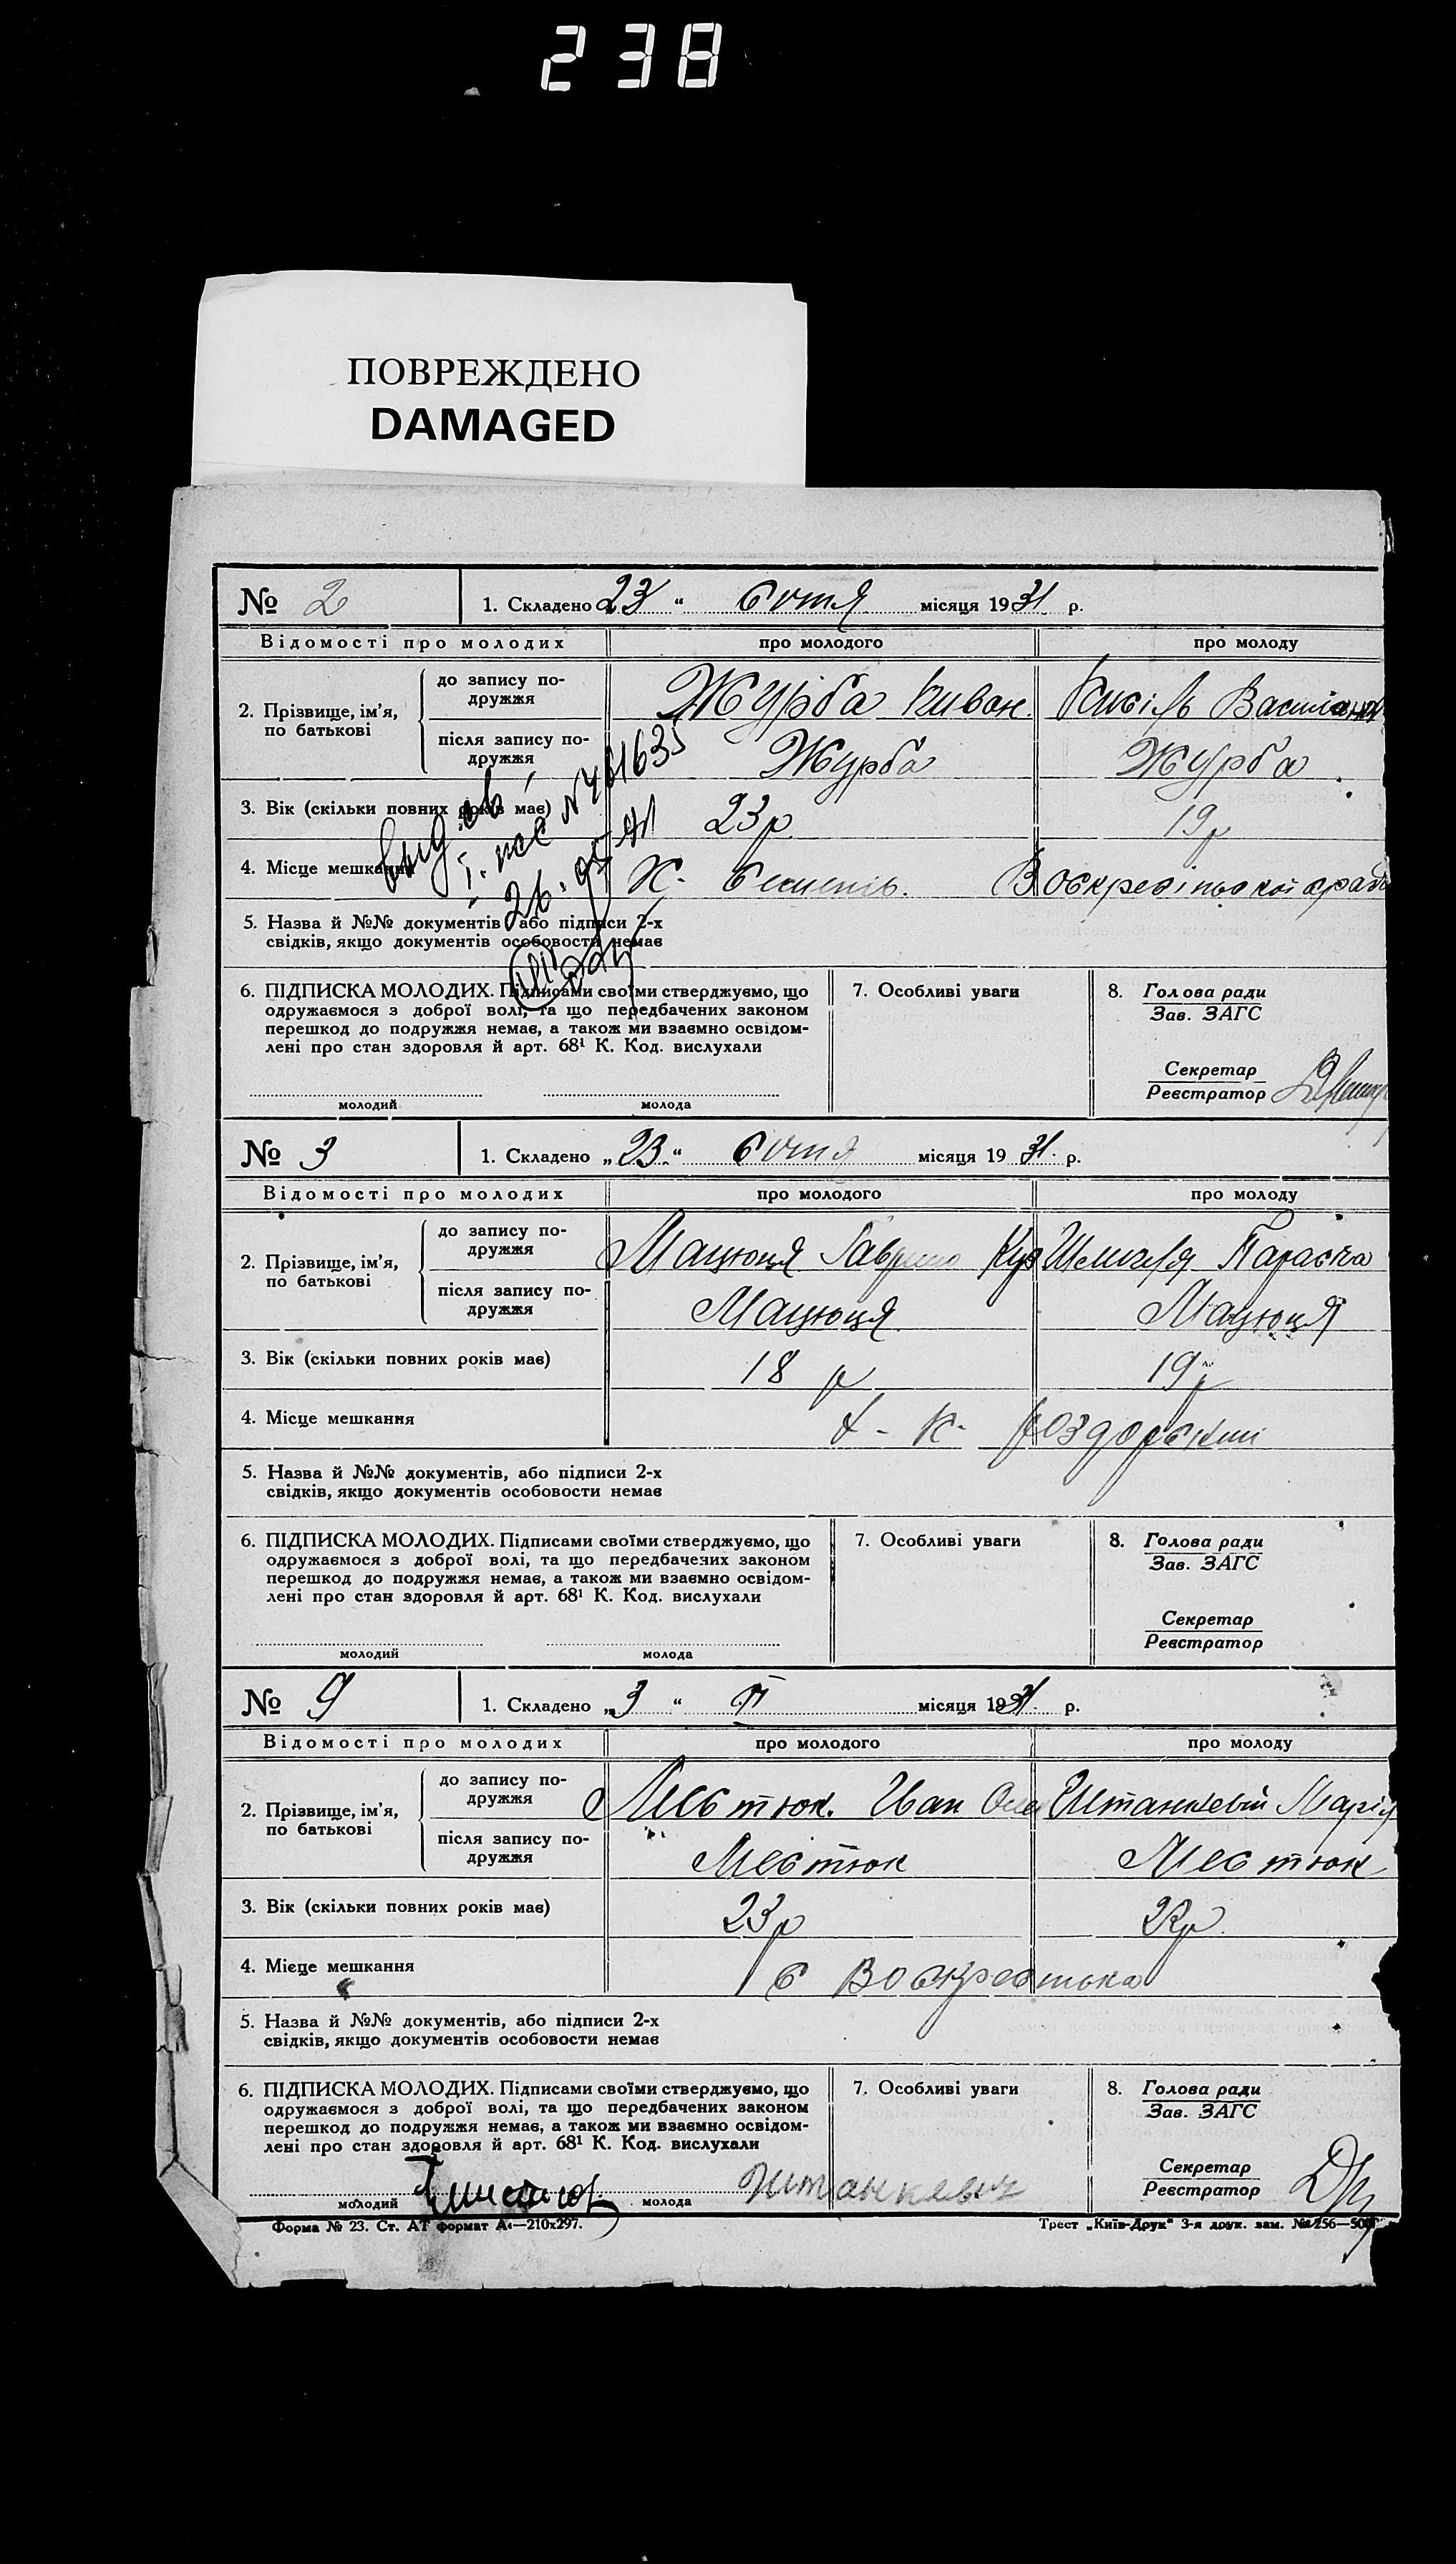 238
ПОВРЕЖДЕНО
DAMAGED
№ 2 1. Складено 23 “ січня місяця 1931 р.
Відомості про молодих про молодого про молоду
2. Прізвище, ім’я, по батькові
до запису по-дружжя Журба Кисіль
після запису по-дружжя Журба Журба
3. Вік (скільки повних років має) 23 р 19 р
4. Місце мешкання
№ 461635
5. Назва й №№ документів або підписи 2-х
свідків, якщо документів особовости немає
6. ПІДПИСКА МОЛОДИХ. Підписами своїми стверджуємо, що
одружаємося з доброї волі, та що передбачених законом
перешкод до подружжя немає, а також ми взаємно освідом-
лені про стан здоровля й арт. 68¹ К. Код. вислухали
молодий молода
7. Особливі уваги
8. Голова ради
Зав. ЗАГС
Секретар
Реєстратор
№ 3 1. Складено „23“ січня місяця 1931. р.
Відомості про молодих про молодого про молоду
2. Прізвище, ім’я, по батькові
до запису по-дружжя Мацюця Гаврило Куз Параска
після запису по-дружжя Мацюця Мацюця
3. Вік (скільки повних років має) 18 р 19 р
4. Місце мешкання
5. Назва й №№ документів, або підписи 2-х
свідків, якщо документів особовости немає
6. ПІДПИСКА МОЛОДИХ. Підписами своїми стверджуємо, що
одружаємося з доброї волі, та що передбачених законом
перешкод до подружжя немає, а також ми взаємно освідом-
лені про стан здоровля й арт. 68¹ К. Код. вислухали
молодий молода
7. Особливі уваги
8. Голова ради
Зав. ЗАГС
Секретар
Реєстратор
№ 1. Складено „3 “ II місяця 1931. р.
Відомості про молодих про молодого про молоду
2. Прізвище, ім’я, по батькові
до запису по-дружжя Местюк. Іван Штанкевіч Марія
після запису по-дружжя Местюк Местюк
3. Вік (скільки повних років має) 23 р
4. Місце мешкання с
5. Назва й №№ документів, або підписи 2-х
свідків, якщо документів особовости немає
6. ПІДПИСКА МОЛОДИХ. Підписами своїми стверджуємо, що
одружаємося з доброї волі, та що передбачених законом
перешкод до подружжя немає, а також ми взаємно освідом-
лені про стан здоровля й арт. 68¹ К. Код. вислухали
молодий молода Штанкевич
7. Особливі уваги
8. Голова ради
Зав. ЗАГС
Секретар
Реєстратор
Форма № 23. Ст. АТ формат А4—210х297. Трест „Київ-Друк“ 3-я друк. зам. № 256—500